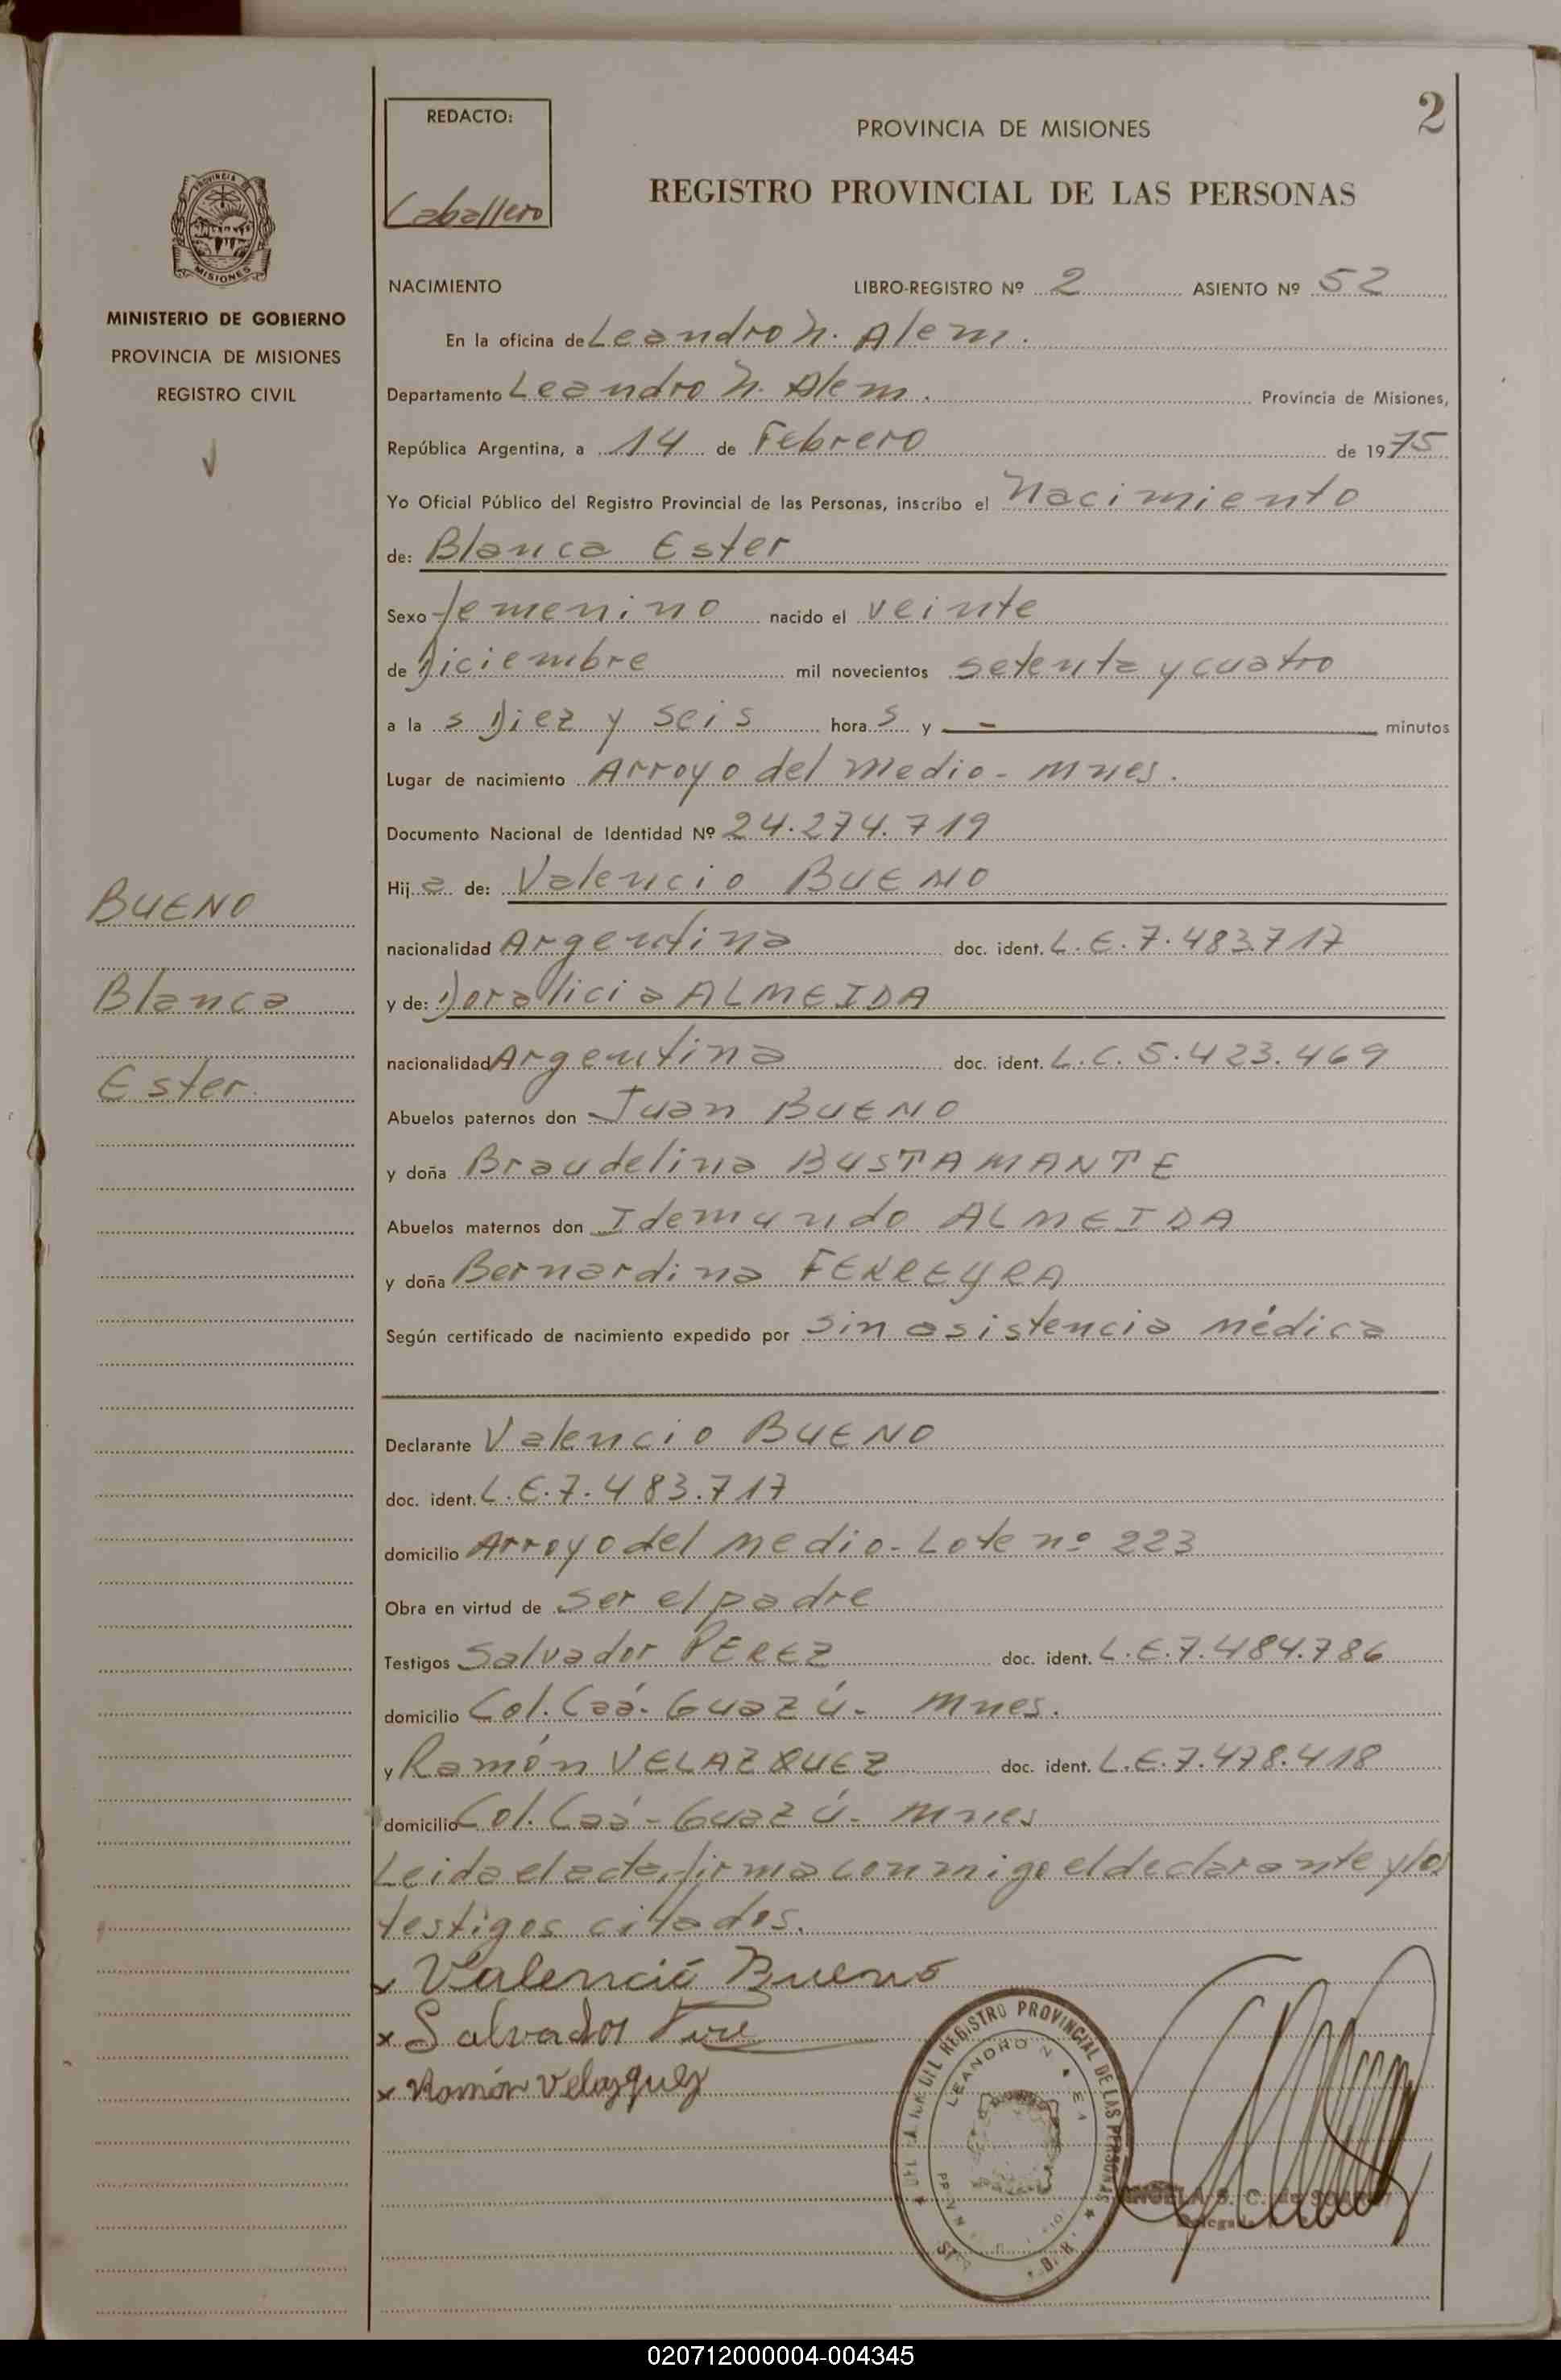 2
REDACTO:
Caballero
PROVINCIA DE MISIONES
REGISTRO PROVINCIAL DE LAS PERSONAS
PROVINCIA DE
MISIONES
MINISTERIO DE GOBIERNO
PROVINCIA DE MISIONES
REGISTRO CIVIL
BUENO
Blanca
Ester
NACIMIENTO LIBRO-REGISTRO Nº 2 ASIENTO Nº 52
En la oficina de Leandro N. Alem.
Departamento Leandro N. Alem. Provincia de Misiones,
República Argentina, a 14 de Febrero de 1975
Yo Oficial Público del Registro Provincial de las Personas, inscribo el Nacimiento
de: Blanca Ester
Sexo femenino nacido el veinte
de Diciembre mil novecientos setenta y cuatro
a la s Diez y seis hora s y - minutos
Lugar de nacimiento Arroyo del Medio - Mnes.
Documento Nacional de Identidad Nº 24.274.719
Hij a de: Valencio BUENO
nacionalidad Argentina doc. ident. L.E. 7.483.717
y de: Doralicia ALMEIDA
nacionalidad Argentina doc. ident. L.C. 5.423.469
Abuelos paternos don Juan BUENO
y doña Braudelina BUSTAMANTE
Abuelos maternos don Idemundo ALMEIDA
y doña Bernardina FERREYRA
Según certificado de nacimiento expedido por sin asistencia médica
Declarante Valencio BUENO
doc. ident. L.E. 7.483.717
domicilio Arroyo del Medio - Lote nº 223
Obra en virtud de ser el padre
Testigos Salvador PEREZ doc. ident. L.E. 7.484.786
domicilio Col. Caá-Guazú - Mnes.
y Ramón VELAZQUEZ doc. ident. L.E. 7.478.418
domicilio Col. Caá-Guazú - Mnes
Leida el acta, firma conmigo el declarante y los
testigos citados.
x Valencio Bueno
x Salvador
x Ramón Velazquez
DEL REGISTRO PROVINCIAL DE LAS PERSONAS
LEANDRO N.
ANGELA S. C. de
020712000004-004345